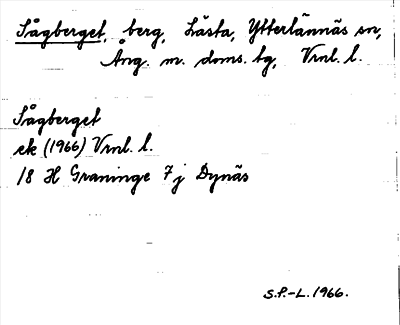 Sågberget, berg, Lästa, Ytterlännäs sn,
Ång. m. doms. tg, Vrnl. l.
Sågberget
ek (1966) Vrnl. l.
18 H Graninge 7j Dynäs
S.P.-L. 1966.